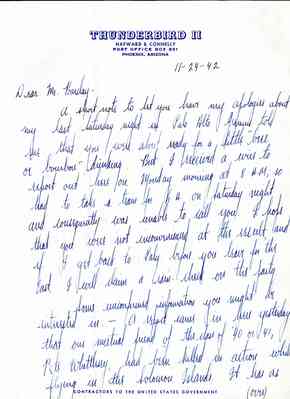 THUNDERBIRD II
HAYWARD & CONNELLY
POST OFFICE BOX 951
PHOENIX, ARIZONA
11-29-42
Dear Mr.
A short note to let you have my apologies about
my last Saturday night in Palo Alto. told
me that you were also ready for a little beer
or bourbon drinking but I received a wire to
report out here on Monday morning at 8 A.M., so
had to take a train for on Saturday night
and consequently was unable to call you. I hope
that you were not inconvenienced at the result and
if I get back to Paly before you leave for the
East I will claim a rain check on the party.
Some unconfirmed information you might be
interested in — A report came in here yesterday
that our mutual friend of the class of '40 or 41,
had been killed in action while
flying in the Solomon Islands. It has as
(over)
CONTRACTORS TO THE UNITED STATES GOVERNMENT